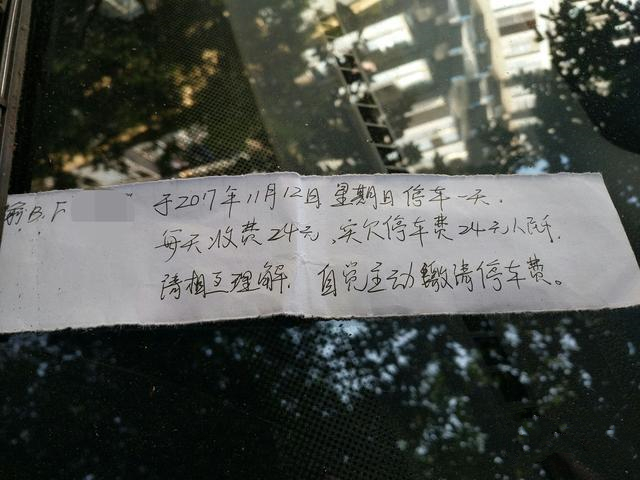 B.F 于2017年11月12日星期日停车一天.
每天收费24元,实欠停车费24元人民币.
请相互理解. 自觉主动缴清停车费。